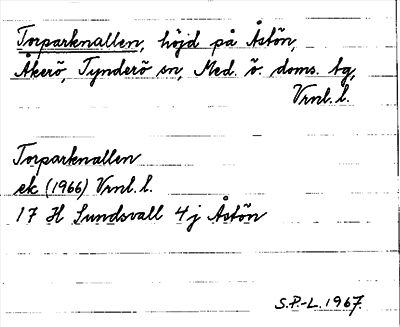 Torparknallen, höjd på Åstön,
Åkerö, Tynderö sn, Med. ö. doms. tg,
Vrnl. l.
Torparknallen
ek (1966) Vrnl. l.
17 H Sundsvall 4 j Åstön
S.P.-L. 1967.